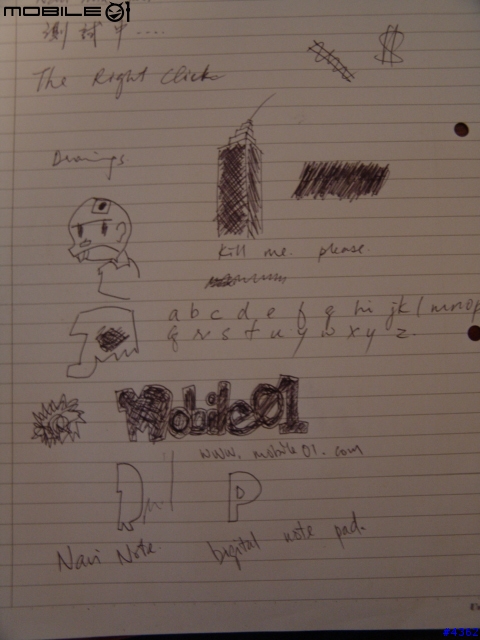 MOBILE01
測試中....
$
The Right Clicks
Drawings
Kill me please.
a b c d e f g hi jk l mnop
q r s t u v w x y z.
Mobile01
www.mobile01.com
P
Navi Note.
Digital note pad.
#4382